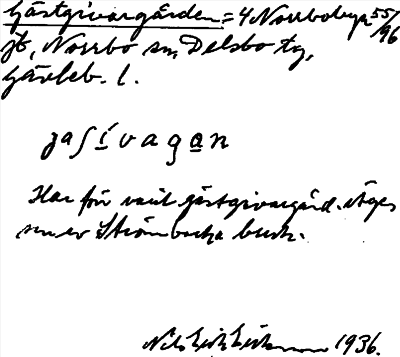 Gästgivargården = 4 Norrboby 55/96
jb, Norrbo sn, Delsbo tg,
Gävleb. l.
jaſívagan
Har för varit gästgivargård. Äges
nu av Strömbacka bruk.
Nils Erik Eriksson 1936.